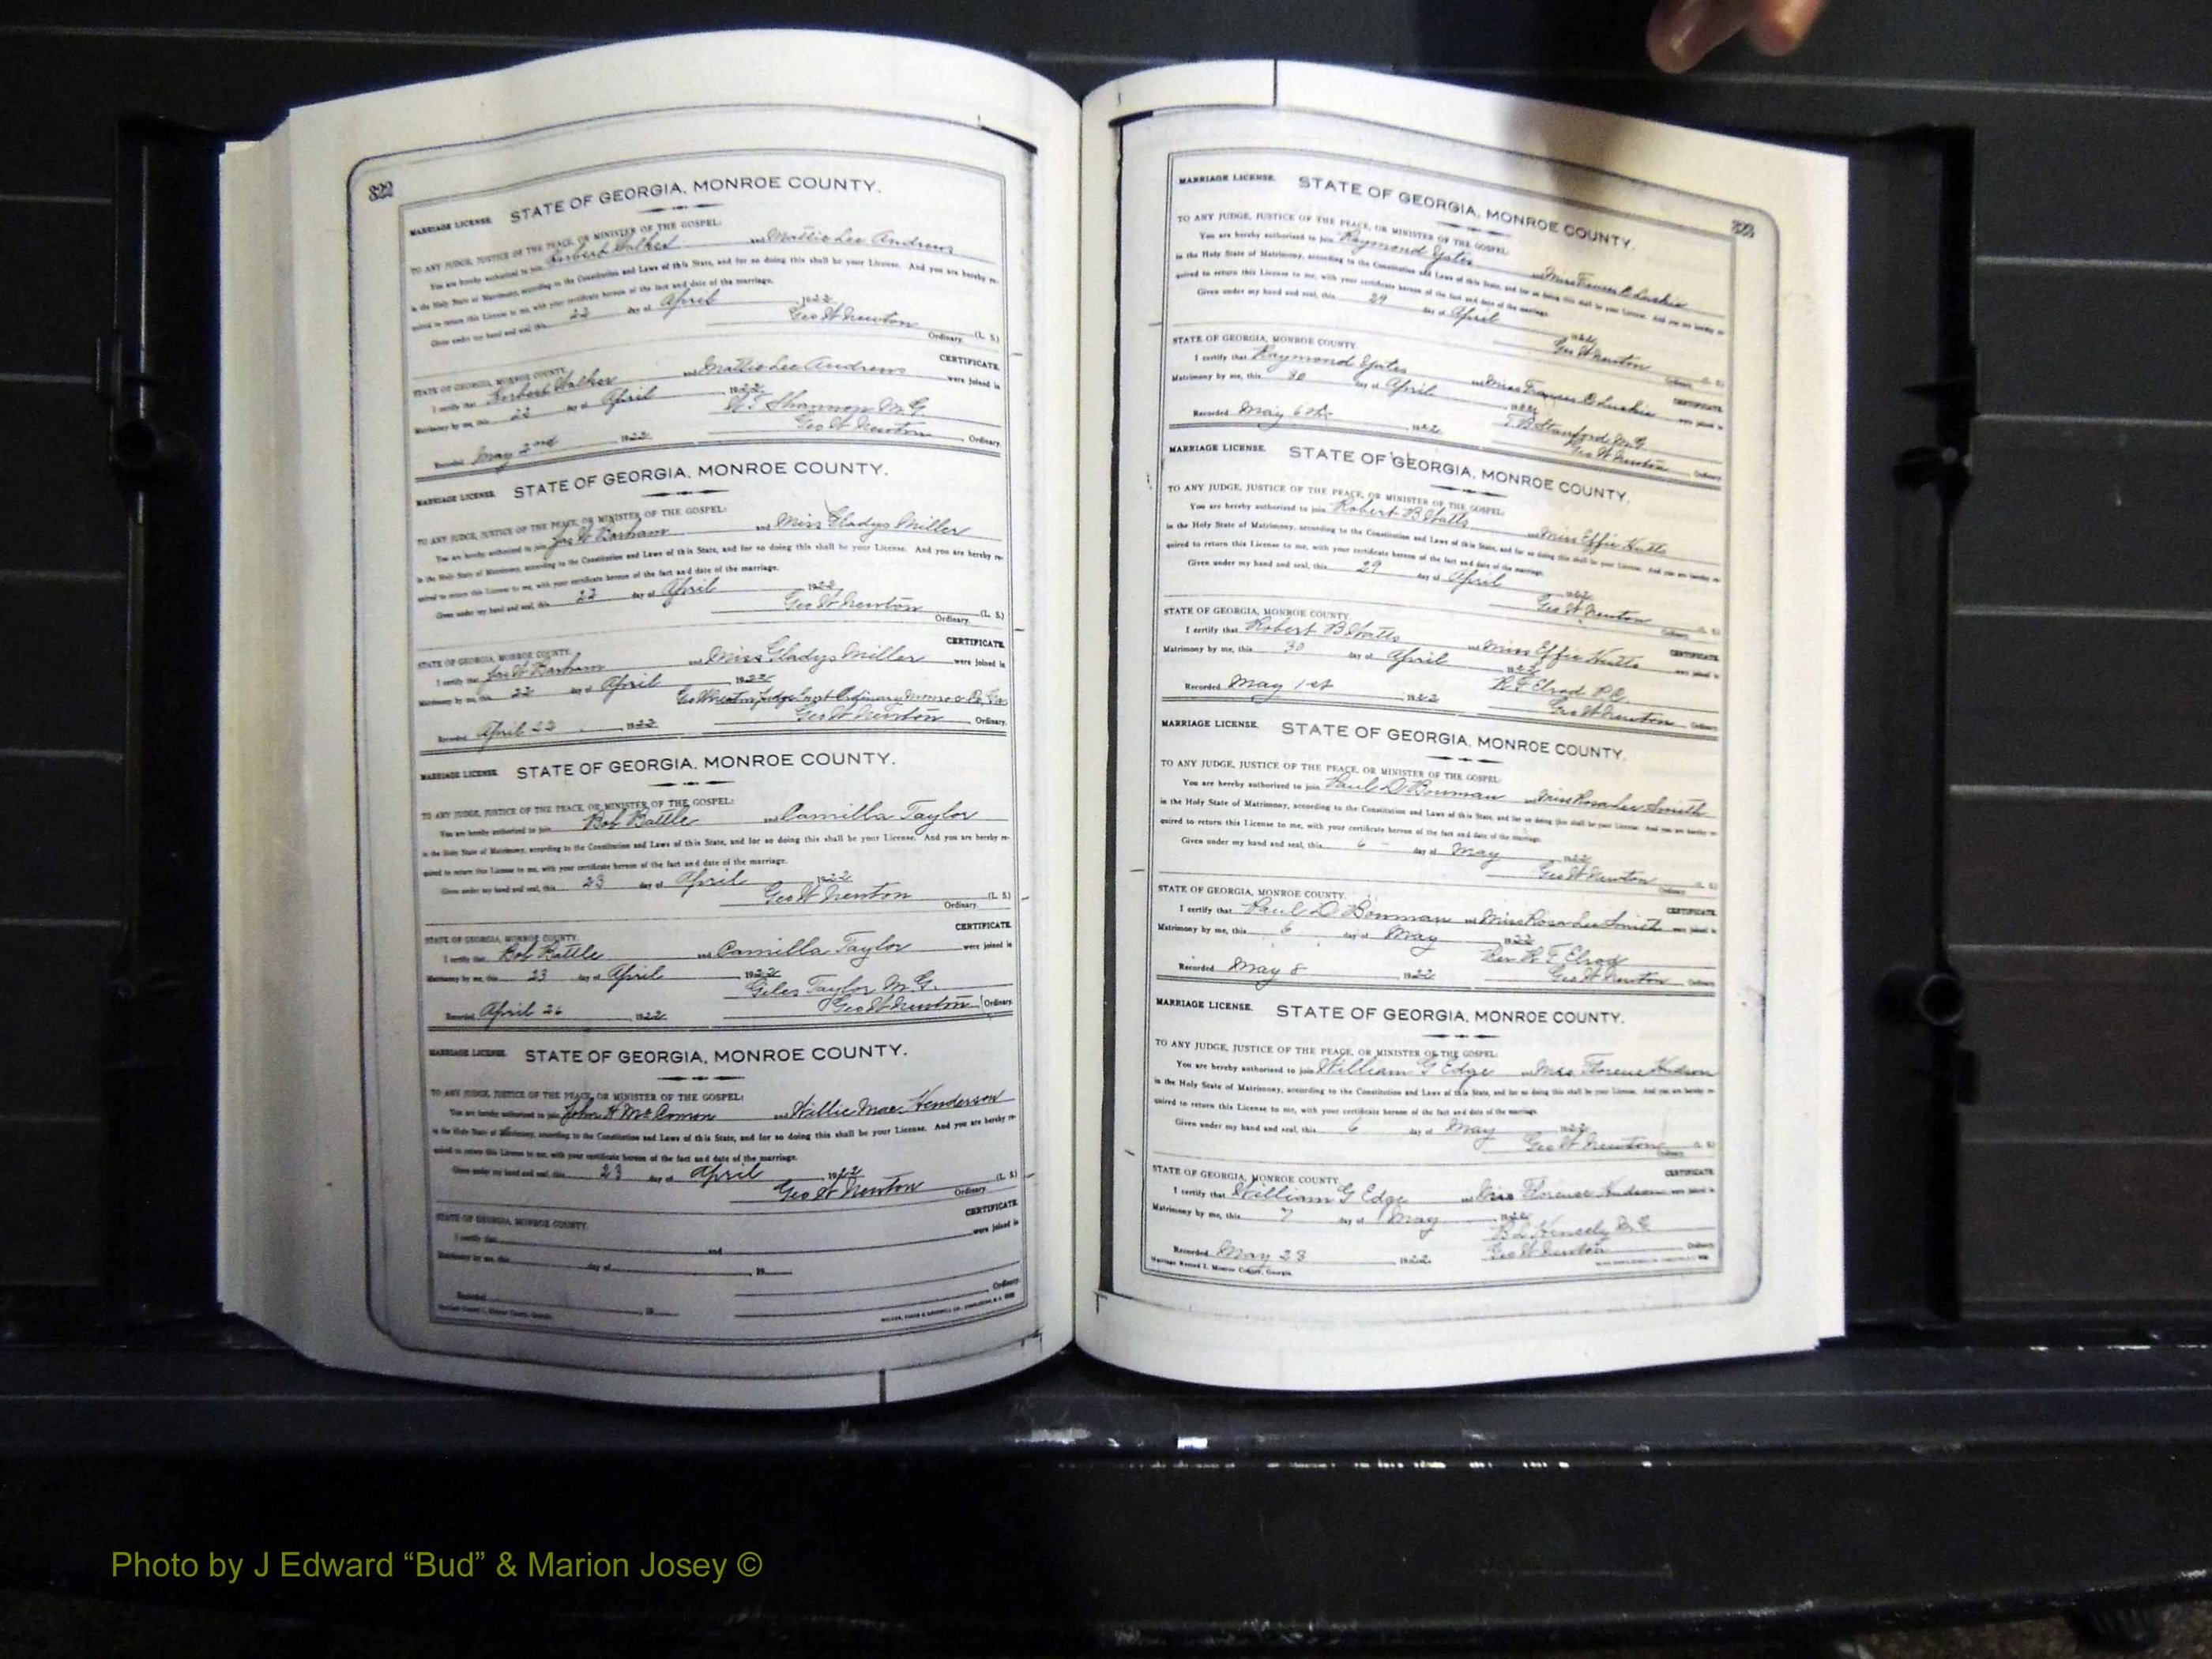 322
MARRIAGE LICENSE. STATE OF GEORGIA, MONROE COUNTY.
TO ANY JUDGE, JUSTICE OF THE PEACE, OR MINISTER OF THE GOSPEL:
You are hereby authorized to join Herbert Walker and Mattie Lee Andrews
in the Holy State of Matrimony, according to the Constitution and Laws of this State, and for so doing this shall be your License. And you are hereby re-
quired to return this License to me, with your certificate hereon of the fact and date of the marriage.
Given under my hand and seal, this 22 day of April 1922
Geo W Newton (L. S.)
Ordinary.
CERTIFICATE.
STATE OF GEORGIA, MONROE COUNTY.
I certify that Herbert Walker and Mattie Lee Andrews were joined in
Matrimony by me, this 22 day of April 1922
Shannon M.G.
Recorded May 2nd 1922 Geo W Newton Ordinary.
MARRIAGE LICENSE. STATE OF GEORGIA, MONROE COUNTY.
TO ANY JUDGE, JUSTICE OF THE PEACE, OR MINISTER OF THE GOSPEL:
You are hereby authorized to join Jas W Barham and Miss Gladys Miller
in the Holy State of Matrimony, according to the Constitution and Laws of this State, and for so doing this shall be your License. And you are hereby re-
quired to return this License to me, with your certificate hereon of the fact and date of the marriage.
Given under my hand and seal, this 22 day of April 1922
Geo W Newton (L. S.)
Ordinary.
CERTIFICATE.
STATE OF GEORGIA, MONROE COUNTY.
I certify that Jas W Barham and Miss Gladys Miller were joined in
Matrimony by me, this 22 day of April 1922
Geo W Newton Judge Court Ordinary Monroe Co, Ga.
Recorded April 22 1922 Geo W Newton Ordinary.
MARRIAGE LICENSE. STATE OF GEORGIA, MONROE COUNTY.
TO ANY JUDGE, JUSTICE OF THE PEACE, OR MINISTER OF THE GOSPEL:
You are hereby authorized to join Bob Battle and Camilla Taylor
in the Holy State of Matrimony, according to the Constitution and Laws of this State, and for so doing this shall be your License. And you are hereby re-
quired to return this License to me, with your certificate hereon of the fact and date of the marriage.
Given under my hand and seal, this 23 day of April 1922
Geo W Newton (L. S.)
Ordinary.
CERTIFICATE.
STATE OF GEORGIA, MONROE COUNTY.
I certify that Bob Battle and Camilla Taylor were joined in
Matrimony by me, this 23 day of April 1922
Giles Taylor M.G.
Recorded April 26 1922 Geo W Newton Ordinary.
MARRIAGE LICENSE. STATE OF GEORGIA, MONROE COUNTY.
TO ANY JUDGE, JUSTICE OF THE PEACE, OR MINISTER OF THE GOSPEL:
You are hereby authorized to join John H McComon and Willie Mae Henderson
in the Holy State of Matrimony, according to the Constitution and Laws of this State, and for so doing this shall be your License. And you are hereby re-
quired to return this License to me, with your certificate hereon of the fact and date of the marriage.
Given under my hand and seal, this 23 day of April 1922
Geo W Newton (L. S.)
Ordinary.
CERTIFICATE.
STATE OF GEORGIA, MONROE COUNTY.
I certify that and were joined in
Matrimony by me, this day of 19
Recorded 19 Ordinary.
323
MARRIAGE LICENSE. STATE OF GEORGIA, MONROE COUNTY.
TO ANY JUDGE, JUSTICE OF THE PEACE, OR MINISTER OF THE GOSPEL:
You are hereby authorized to join Raymond Yates and Miss Frances
in the Holy State of Matrimony, according to the Constitution and Laws of this State, and for so doing this shall be your License. And you are hereby re-
quired to return this License to me, with your certificate hereon of the fact and date of the marriage.
Given under my hand and seal, this 29 day of April 1922
Geo W Newton (L. S.)
Ordinary.
STATE OF GEORGIA, MONROE COUNTY. CERTIFICATE.
I certify that Raymond Yates and Miss Frances were joined in
Matrimony by me, this 30 day of April 1922
Stanford M.G.
Recorded May 6th 1922 Geo W Newton Ordinary.
MARRIAGE LICENSE. STATE OF GEORGIA, MONROE COUNTY.
TO ANY JUDGE, JUSTICE OF THE PEACE, OR MINISTER OF THE GOSPEL:
You are hereby authorized to join Robert B Watts and Miss Effie Hutto
in the Holy State of Matrimony, according to the Constitution and Laws of this State, and for so doing this shall be your License. And you are hereby re-
quired to return this License to me, with your certificate hereon of the fact and date of the marriage.
Given under my hand and seal, this 29 day of April 1922
Geo W Newton (L. S.)
Ordinary.
STATE OF GEORGIA, MONROE COUNTY. CERTIFICATE.
I certify that Robert B Watts and Miss Effie Hutto were joined in
Matrimony by me, this 30 day of April 1922
H F Elrod P.C.
Recorded May 1st 1922 Geo W Newton Ordinary.
MARRIAGE LICENSE. STATE OF GEORGIA, MONROE COUNTY.
TO ANY JUDGE, JUSTICE OF THE PEACE, OR MINISTER OF THE GOSPEL:
You are hereby authorized to join Paul D Bowman and Miss Rosa Lee Smith
in the Holy State of Matrimony, according to the Constitution and Laws of this State, and for so doing this shall be your License. And you are hereby re-
quired to return this License to me, with your certificate hereon of the fact and date of the marriage.
Given under my hand and seal, this 6 day of May 1922
Geo W Newton (L. S.)
Ordinary.
STATE OF GEORGIA, MONROE COUNTY. CERTIFICATE.
I certify that Paul D Bowman and Miss Rosa Lee Smith were joined in
Matrimony by me, this 6 day of May 1922
Rev H F Elrod
Recorded May 8 1922 Geo W Newton Ordinary.
MARRIAGE LICENSE. STATE OF GEORGIA, MONROE COUNTY.
TO ANY JUDGE, JUSTICE OF THE PEACE, OR MINISTER OF THE GOSPEL:
You are hereby authorized to join William G Edge and Mrs Florence Hudson
in the Holy State of Matrimony, according to the Constitution and Laws of this State, and for so doing this shall be your License. And you are hereby re-
quired to return this License to me, with your certificate hereon of the fact and date of the marriage.
Given under my hand and seal, this 6 day of May 1922
Geo W Newton (L. S.)
Ordinary.
STATE OF GEORGIA, MONROE COUNTY. CERTIFICATE.
I certify that William G Edge and Mrs Florence Hudson were joined in
Matrimony by me, this 7 day of May 1922
M.G.
Recorded May 23 1922 Geo W Newton Ordinary.
Marriage Record I, Monroe County, Georgia.
Photo by J Edward “Bud” & Marion Josey ©